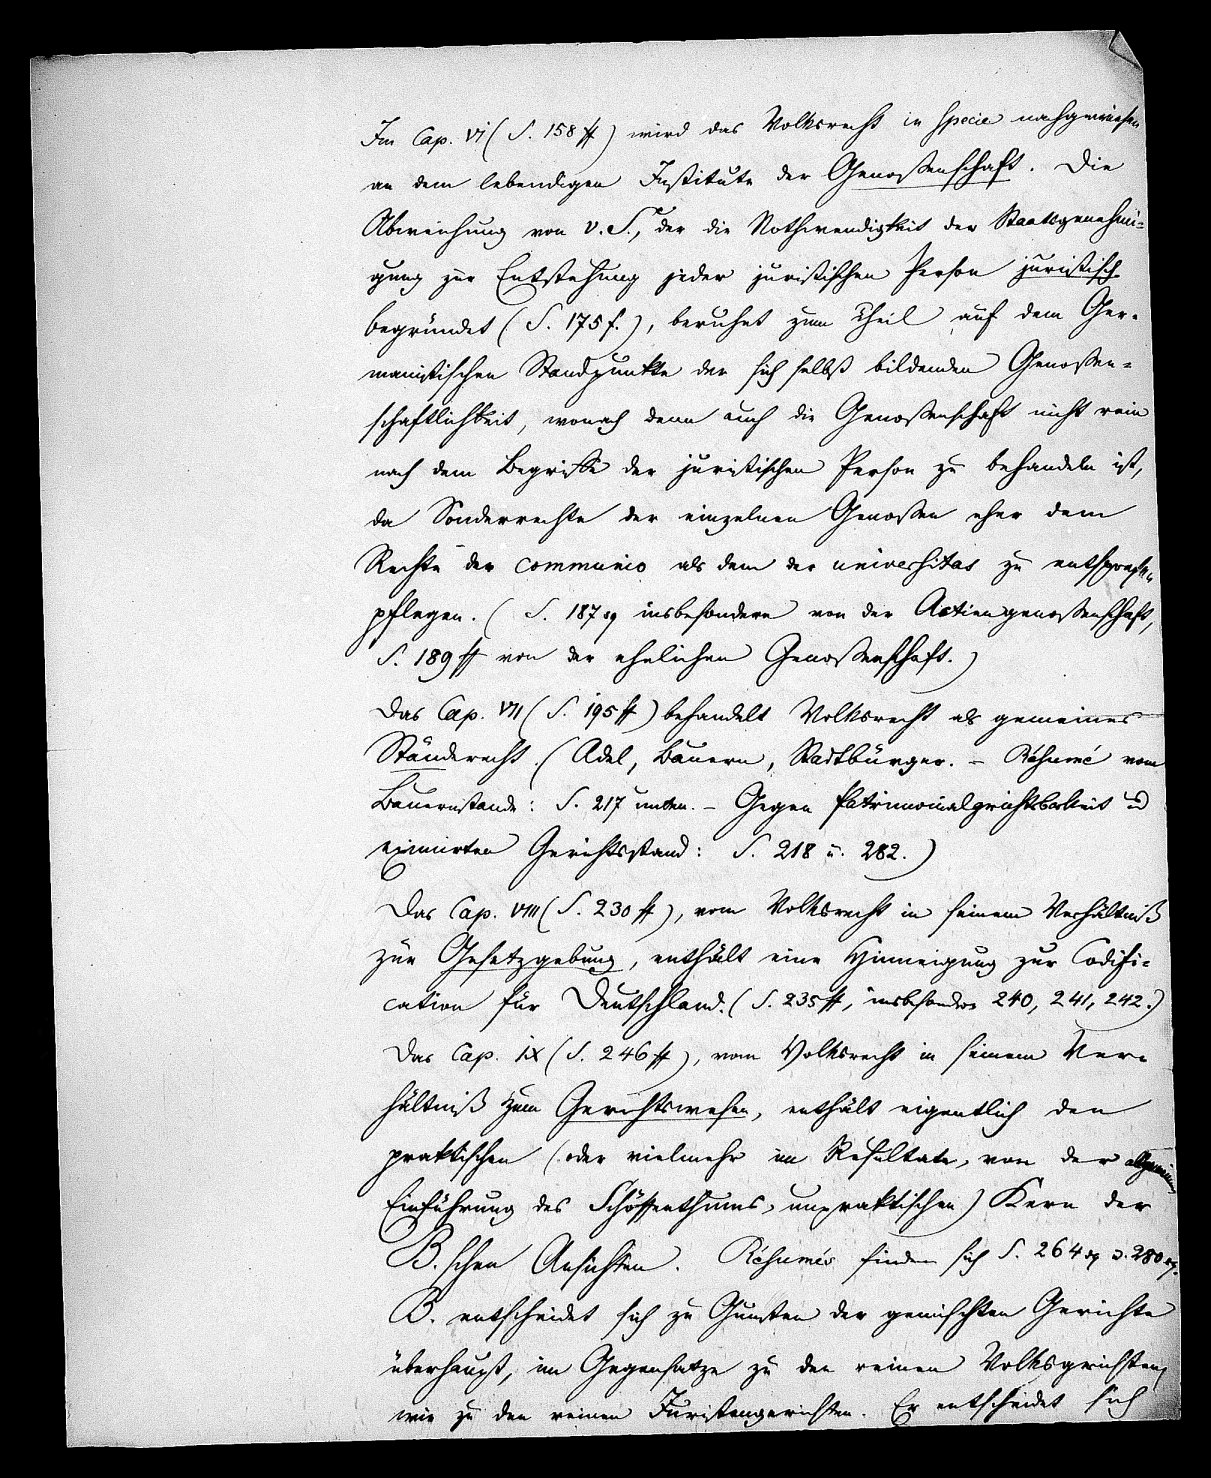 Im Cap. VI (S. 158 ff) wird das Volksrecht in specie nachgewiesen
an dem lebendigen Institute der Genossenschaft. Die
Abweichung von v. S., der die Nothwendigkeit der Staatsgenehmi-
gung zur Entstehung jeder juristischen Person juristisch
begründet (S. 175 f.), beruhet zum Theil auf dem Ger-
manistischen Standpunkte der sich selbst bildenden Genossen-
schaftlichkeit, wonach denn auch die Genossenschaft nicht rein
nach dem Begriffe der juristischen Person zu behandeln ist,
da Sonderrechte der einzelnen Genossen eher dem
Rechte der communio als dem der universitas zu entsprechen
pflegen. (S. 187 sq insbesondere von der Actiengenossenschaft,
S. 189 ff von der ehelichen Genossenschaft.)
Das Cap. VII (S. 195 ff) behandelt Volksrecht als gemeines
Ständerecht. (Adel, Bauern, Stadtbürger. – Résumé vom
Bauernstande: S. 217 unten. – Gegen Patrimonialgerichtsbarkeit u
eximirten Gerichtsstand: S. 218 u. 282.)
Das Cap. VIII (S. 230 ff), vom Volksrecht in seinem Verhältniß
zur Gesetzgebung, enthält eine Hinneigung zur Codifi-
cation für Deutschland. (S. 235 ff, insbesondre 240, 241, 242.)
Das Cap. IX (S. 246 ff), vom Volksrecht in seinem Ver-
hältniß zum Gerichtswesen, enthält eigentlich den
praktischen (oder vielmehr im Resultate, von der allgemeinen
Einführung des Schöffenthums, unpraktischen) Kern der
B.schen Ansichten. Résumés finden sich S. 264 sq u. 280 sq.
B. entscheidet sich zu Gunsten der gemischten Gerichte
überhaupt, im Gegensatze zu den reinen Volksgerichten,
wie zu den reinen Juristengerichten. Er entscheidet sich